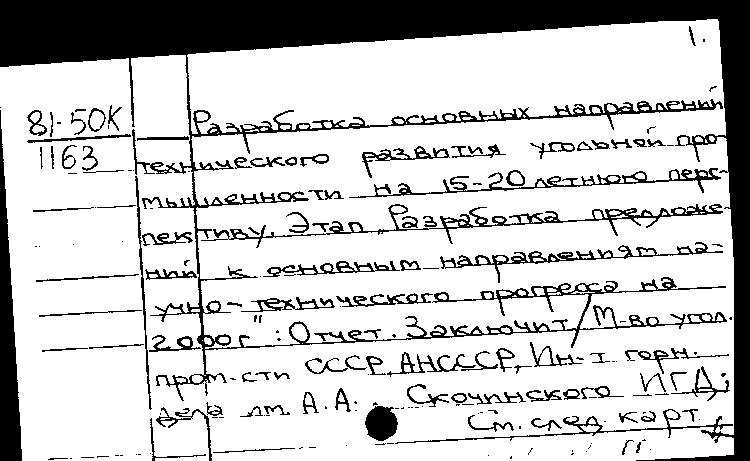 1.
81-50К
1163
Разработка основных направлений
технического развития угольной про-
мышленности на 15-20летнюю перс-
пективу. Этап „Разработка предложе-
ний к основным направлениям на-
учно-технического прогресса на
2000г": Отчет. Заключит/М-во угол.
пром-сти СССР, АНСССР, Ин-т горн.
дела им. А.А. Скочинского ИГД;
См. след. карт